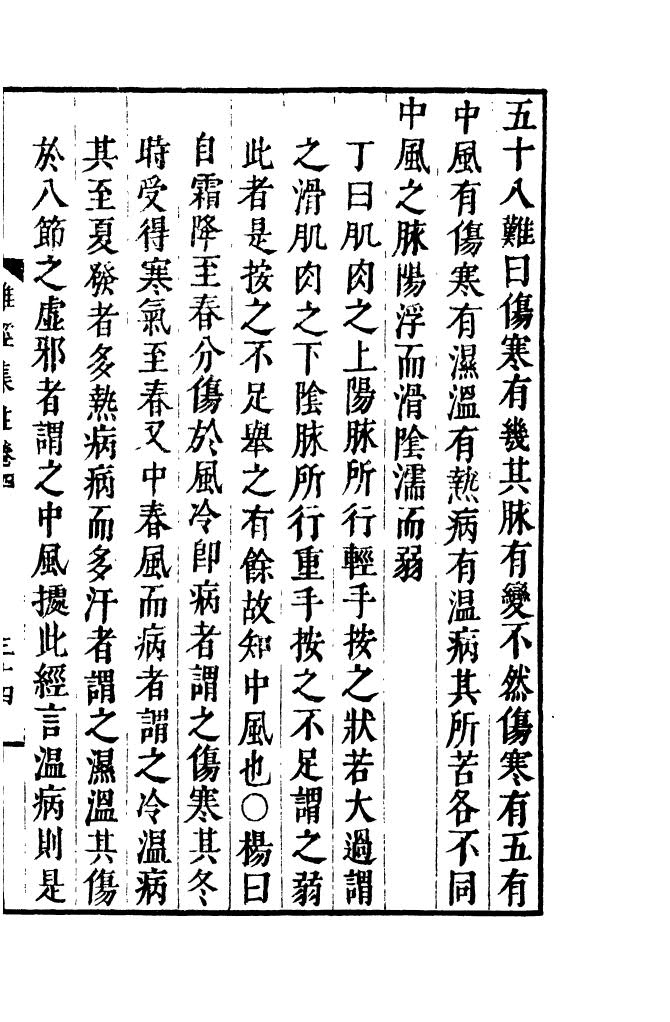 五十八難曰傷寒有幾其脉有變不然傷寒有五有
中風有傷寒有濕溫有熱病有温病其所苦各不同
中風之脉陽浮而滑隂濡而弱
丁曰肌肉之上陽脉所行輕手按之狀若大過謂
之滑肌肉之下隂脉所行重手按之不足謂之弱
此者是按之不足舉之有餘故知中風也〇楊曰
自霜降至春分傷於風冷卽病者謂之傷寒其冬
時受得寒氣至春又中春風而病者謂之冷温病
其至夏發者多熱病病而多汗者謂之濕溫其傷
於八節之虛邪者謂之中風據此經言温病則是
難經集註卷四
三十四